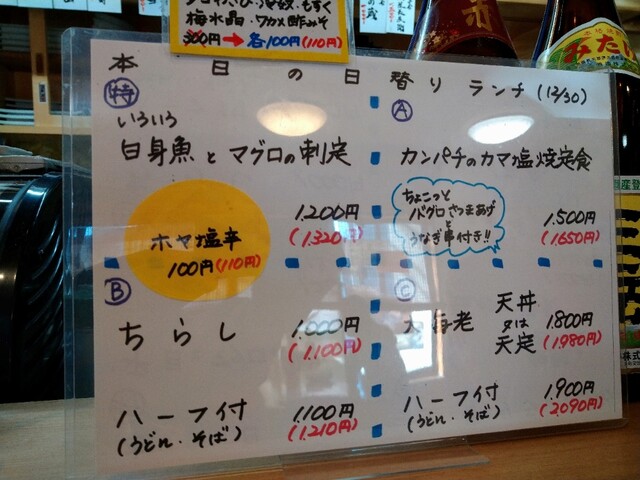 梅水晶・ワカメ酢みそ
300円→各100円(110円)
本日の日替りランチ(12/30)
特
いろいろ
白身魚とマグロの刺定
1.200円
(1.320円)
ホヤ塩辛
100円(110円)
A
カンパチのカマ塩焼定食
ちょこっと
バグロさつまあげ
と
うなぎ串付き!!
1.500円
(1.650円)
B
ちらし
1.000円
(1.100円)
ハーフ付
(うどん・そば)
1.100円
(1.210円)
C
大海老
天丼
又は
天定
1.800円
(1.980円)
ハーフ付
(うどん・そば)
1.900円
(2.090円)